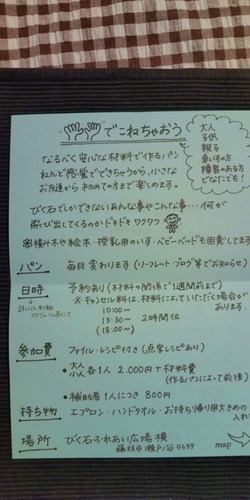 でこねちゃおう
大人
子供
親子
車いすの方
障害のある方
どなたでも!
なるべく安心な材料で作るパン
ねんど感覚でできちゃうから、小さな
お友達から初めての方まで楽しめます。
びく石でしかできないあんな事やこんな事…何が
飛び出してくるのか ドキドキ ワクワク
積み木や絵本・授乳用のいす・ベビーベッドも用意してます
パン 毎月変わります (リーフレート・ブログ等でお知らせ)
日時 予約あり (材料の関係で1週間前まで)
※キャンセル料は、材料によっていただく場合が
あります。
10:00~
13:30~ 2時間位
(18:00~)
参加費 ファイル・レシピ付き (点字レシピあり)
・大人 小人 各1人 2.000円+材料費
(作るパンによって前後)
・補助者1人 800円
持ち物 エプロン・ハンドタオル・お持ち帰り用大きめの
入れ
場所 びく石ふれあい広場横
藤枝市瀬戸ノ谷5639
map